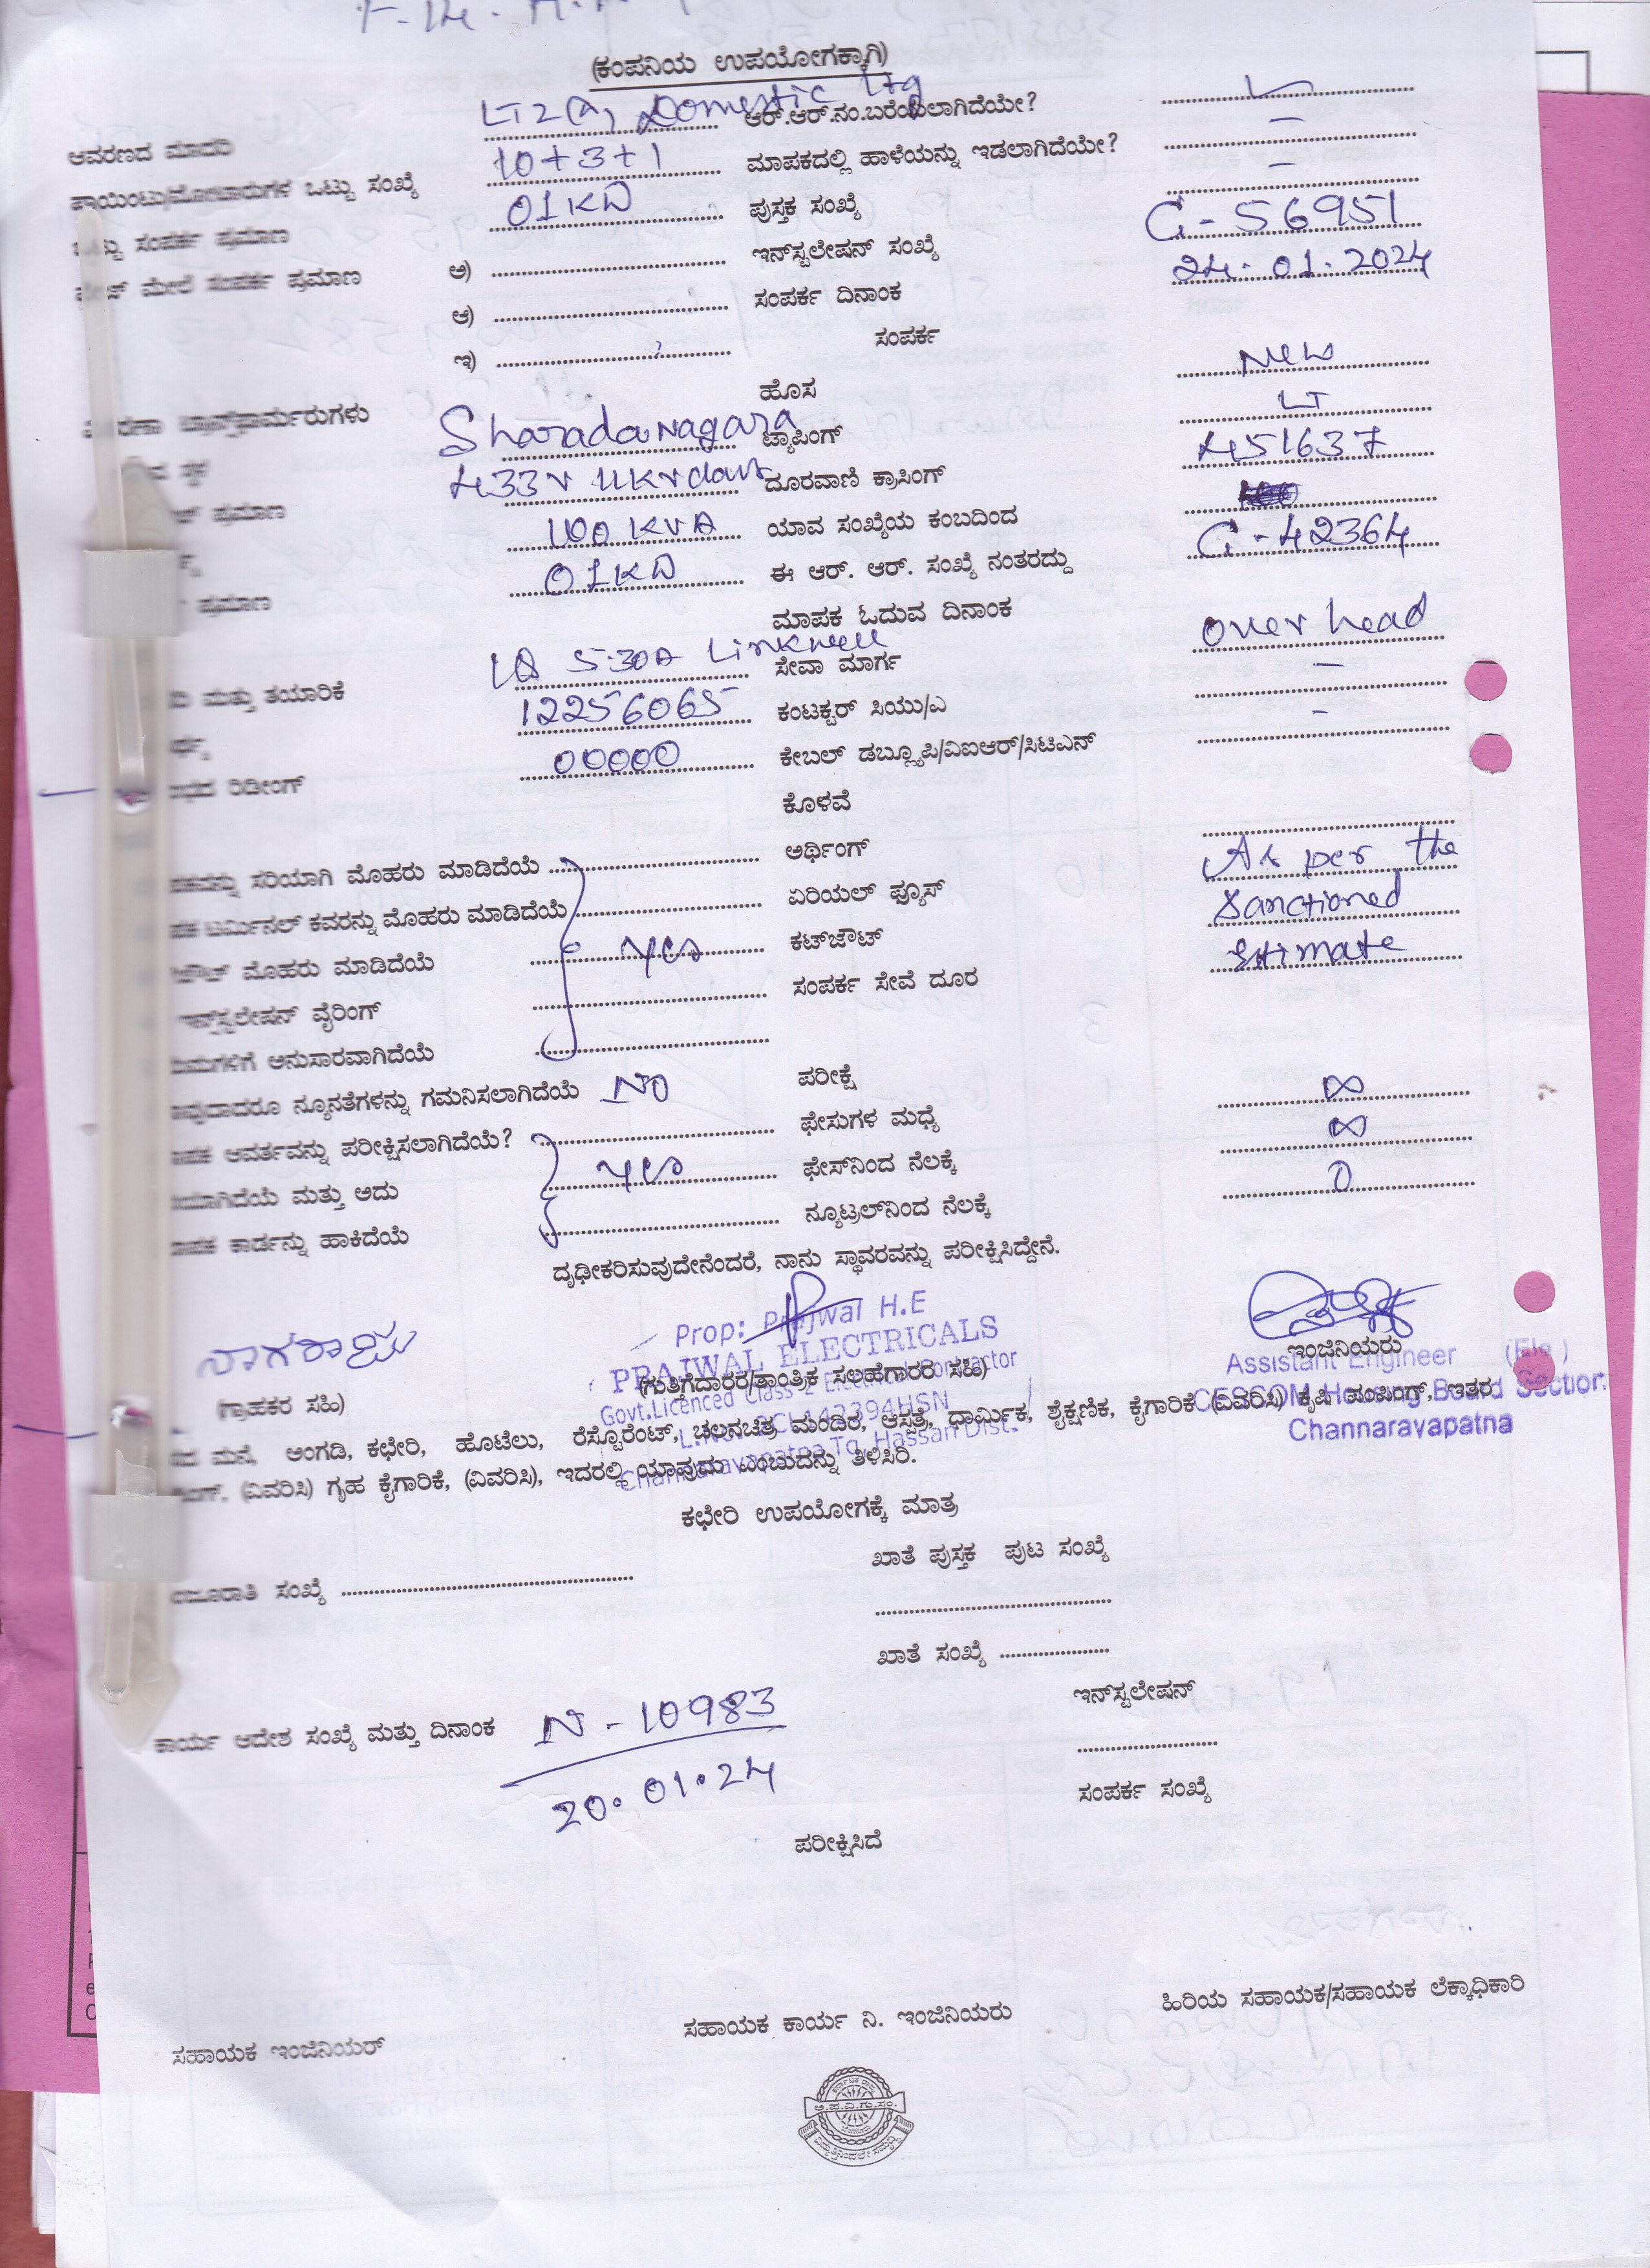 (ಕಂಪನಿಯ ಉಪಯೋಗಕ್ಕಾಗಿ)
ಆವರಣದ ಮಾದರಿ LT2(a) Domestic Ltg ಆರ್.ಆರ್.ನಂ.ಬರೆಯಲಾಗಿದೆಯೇ?
ಪಾಯಿಂಟು/ಮೋಟಾರುಗಳ ಒಟ್ಟು ಸಂಖ್ಯೆ 10+3+1 ಮಾಪಕದಲ್ಲಿ ಹಾಳೆಯನ್ನು ಇಡಲಾಗಿದೆಯೇ? –
ಒಟ್ಟು ಸಂಪರ್ಕ ಪ್ರಮಾಣ 01KW ಪುಸ್ತಕ ಸಂಖ್ಯೆ –
ಮೇಲೆ ಸಂಪರ್ಕ ಪ್ರಮಾಣ ಅ) ಇನ್‌ಸ್ಟಲೇಷನ್ ಸಂಖ್ಯೆ C-56951
ಆ) ಸಂಪರ್ಕ ದಿನಾಂಕ 24.01.2024
ಇ) ಸಂಪರ್ಕ
ಹೊಸ New
ಟ್ರಾನ್ಸ್‌ಫಾರ್ಮರುಗಳು Sharadanagara ಟ್ಯಾಪಿಂಗ್ LT
ಸ್ಥಳ 433v 11kv ದೂರವಾಣಿ ಕ್ರಾಸಿಂಗ್ 451637
ಪ್ರಮಾಣ 100 KVA ಯಾವ ಸಂಖ್ಯೆಯ ಕಂಬದಿಂದ
ಪ್ರಮಾಣ 01KW ಈ ಆರ್. ಆರ್. ಸಂಖ್ಯೆ ನಂತರದ್ದು C-42364
ಮಾಪಕ ಓದುವ ದಿನಾಂಕ
ಮತ್ತು ತಯಾರಿಕೆ 5-30A Linkwell ಸೇವಾ ಮಾರ್ಗ over head
12256065 ಕಂಟಕ್ಟರ್ ಸಿಯು/ಎ –
ರಿಡೀಂಗ್ 00000 ಕೇಬಲ್ ಡಬ್ಲ್ಯೂಪಿ/ವಿಐಆರ್/ಸಿಟಿಎನ್ –
ಕೊಳವೆ
ಸರಿಯಾಗಿ ಮೊಹರು ಮಾಡಿದೆಯೆ ಅರ್ಥಿಂಗ್ As per the
ಟರ್ಮಿನಲ್ ಕವರನ್ನು ಮೊಹರು ಮಾಡಿದೆಯೆ ಏರಿಯಲ್ ಫ್ಯೂಸ್ Sanctioned
ಮೊಹರು ಮಾಡಿದೆಯೆ yes ಕಟ್‌ಔಟ್ Estimate
ಇನ್ಸ್ಟಲೇಷನ್ ವೈರಿಂಗ್ ಸಂಪರ್ಕ ಸೇವೆ ದೂರ
ಅನುಸಾರವಾಗಿದೆಯೆ
ನ್ಯೂನತೆಗಳನ್ನು ಗಮನಿಸಲಾಗಿದೆಯೆ NO ಪರೀಕ್ಷೆ
ಆವರ್ತವನ್ನು ಪರೀಕ್ಷಿಸಲಾಗಿದೆಯೆ? ಫೇಸುಗಳ ಮಧ್ಯೆ ∞
ಮತ್ತು ಅದು yes ಫೇಸ್‌ನಿಂದ ನೆಲಕ್ಕೆ ∞
ಕಾರ್ಡನ್ನು ಹಾಕಿದೆಯೆ ನ್ಯೂಟ್ರಲ್‌ನಿಂದ ನೆಲಕ್ಕೆ 0
ದೃಢೀಕರಿಸುವುದೇನೆಂದರೆ, ನಾನು ಸ್ಥಾವರವನ್ನು ಪರೀಕ್ಷಿಸಿದ್ದೇನೆ.
ನಾಗರಾಜು
Prop: Prajwal H.E
PRAJWAL ELECTRICALS
Govt.Licenced Class- Electrical Contractor
142394HSN
Channaravapatna Tq, Hassan Dist.
(ಗ್ರಾಹಕರ ಸಹಿ) (ಗುತ್ತಿಗೆದಾರರ/ತಾಂತ್ರಿಕ ಸಲಹೆಗಾರರ ಸಹಿ) ಇಂಜಿನಿಯರು
Assistant Engineer (Ele)
CESCOM Housing Board Section
Channaravapatna
ಮನೆ, ಅಂಗಡಿ, ಕಛೇರಿ, ಹೊಟೆಲು, ರೆಸ್ಟೊರೆಂಟ್, ಚಲನಚಿತ್ರ ಮಂದಿರ, ಆಸ್ಪತ್ರೆ, ಧಾರ್ಮಿಕ, ಶೈಕ್ಷಣಿಕ, ಕೈಗಾರಿಕೆ (ವಿವರಿಸಿ) ಕೃಷಿ ಪಂಪಿಂಗ್, ಇತರ
(ವಿವರಿಸಿ) ಗೃಹ ಕೈಗಾರಿಕೆ, (ವಿವರಿಸಿ), ಇದರಲ್ಲಿ ಯಾವುದು ಎಂಬುದನ್ನು ತಿಳಿಸಿರಿ.
ಕಛೇರಿ ಉಪಯೋಗಕ್ಕೆ ಮಾತ್ರ
ಖಾತೆ ಪುಸ್ತಕ ಪುಟ ಸಂಖ್ಯೆ
ಸಂಖ್ಯೆ
ಖಾತೆ ಸಂಖ್ಯೆ
ಇನ್‌ಸ್ಟಲೇಷನ್
ಕಾರ್ಯ ಆದೇಶ ಸಂಖ್ಯೆ ಮತ್ತು ದಿನಾಂಕ N-10983
20.01.24
ಸಂಪರ್ಕ ಸಂಖ್ಯೆ
ಪರೀಕ್ಷಿಸಿದೆ
ಸಹಾಯಕ ಇಂಜಿನಿಯರ್ ಸಹಾಯಕ ಕಾರ್ಯ ನಿ. ಇಂಜಿನಿಯರು ಹಿರಿಯ ಸಹಾಯಕ/ಸಹಾಯಕ ಲೆಕ್ಕಾಧಿಕಾರಿ